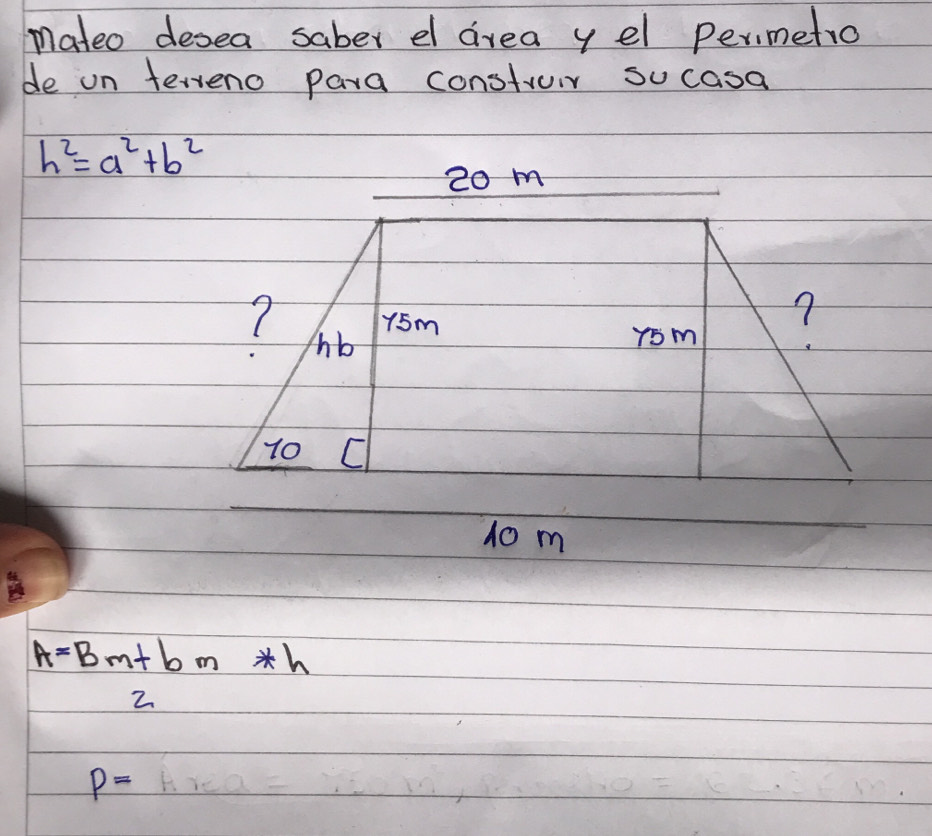 Mateo desea saber el área y el Perimetro
de un terreno para construir su casa
h²=a²+b²
20 m
?
hb
15m
15m
?
10
10 m
A=Bm+bm *h
2
P= Area =